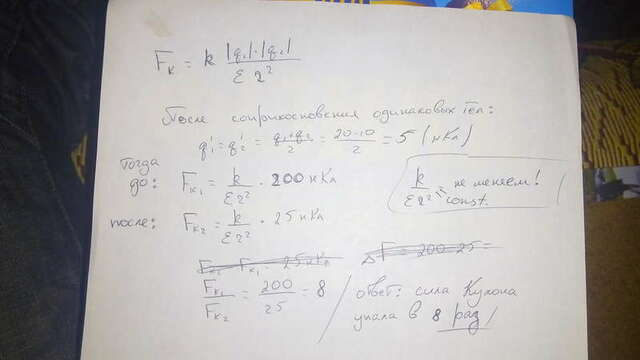 Fк = k |q₁|·|q₂| / ε r²
После соприкосновения одинаковых тел:
q₁' = q₂' = (q₁+q₂)/2 = (20-10)/2 = 5 (нКл)
Тогда
до: Fк₁ = k/εr² · 200 нКл
k/εr² = не меняем! const.
после: Fк₂ = k/εr² · 25 нКл
Fк₁/Fк₂ = 200/25 = 8
ответ: сила Кулона
упала в 8 раз